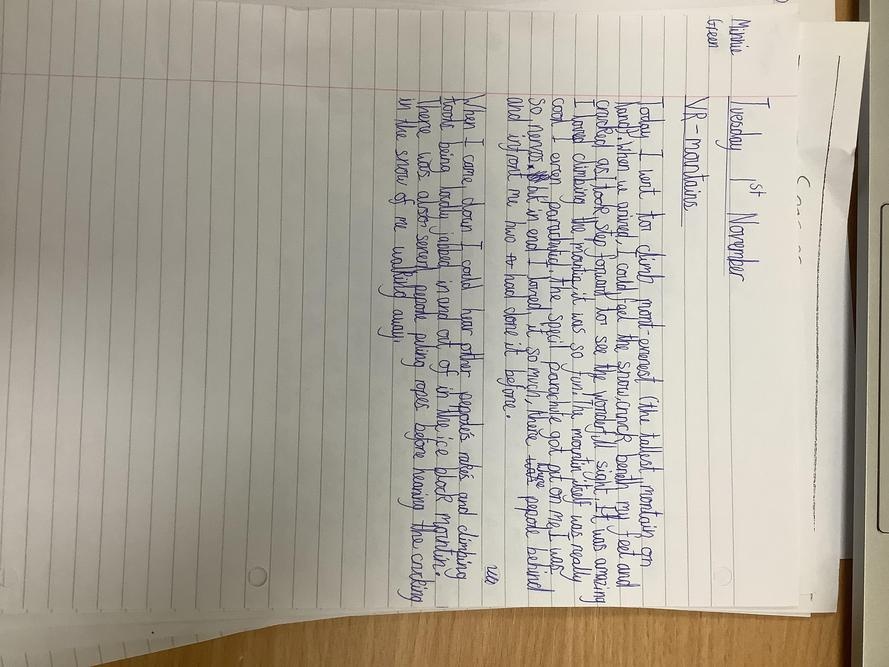 Minnie
Green
Tuesday 1st November
VR-mountains
Today I went to climb mont-everest (the tallest montain on
land). When we arrived, I could feel the snow crack beneth my feet and
cracked as I took step forward to see the wonderfull sight. It was amazing
I loved climbing the montia, it was so fun. The mountin itself was really
cool I even parachutid. The specil parachute got put on me, I was
so nervos, but in end I loved it so much, there three pepole behind
and infront me two had done it before.
When I came down I could hear other pepole's rakes and climbing
tools being loudly jabbed in and out of in the ice block mountin.
There was also seven pepole puling ropes before hearing the
in the snow of me walking away.